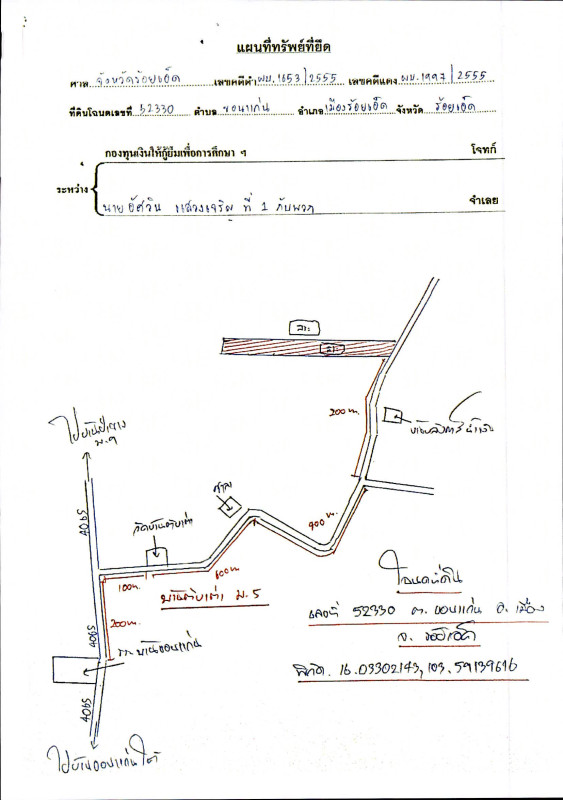 แผนที่ทรัพย์ที่ยึด
ศาล จังหวัดร้อยเอ็ด เลขคดีดำ ผบ.1653/2555 เลขคดีแดง ผบ.1997/2555
ที่ดินโฉนดเลขที่ 52330 ตำบล ขอนแก่น อำเภอ เมืองร้อยเอ็ด จังหวัด ร้อยเอ็ด
กองทุนเงินให้กู้ยืมเพื่อการศึกษา ฯ โจทก์
ระหว่าง
นายอัศวิน แสวงเจริญ ที่ 1 กับพวก จำเลย
สระ
สระ
200 ม.
ม.9
4065
ศาลา
900 ม.
100ม.
600 ม.
200ม.
ม.5
4065
ร.ร. บ้านขอนแก่น
4065
โฉนดที่ดิน
เลขที่ 52330 ต. ขอนแก่น อ. เมือง
จ. ร้อยเอ็ด
พิกัด. 16.03302143, 103.59139616
ไปบ้านขอนแก่นใต้